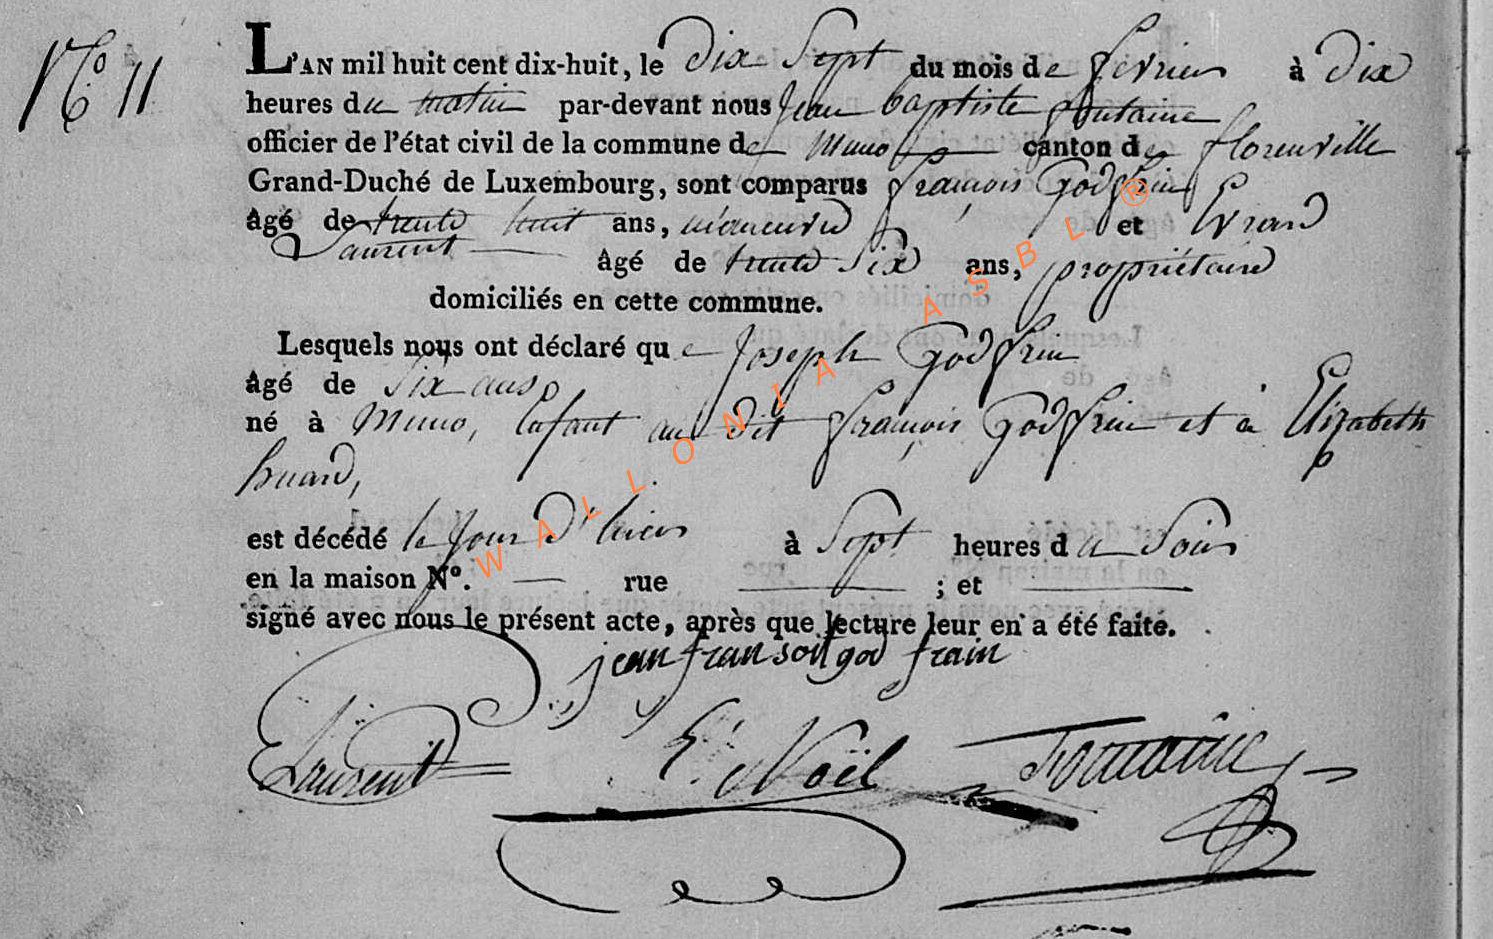 N.º 11
L'AN mil huit cent dix-huit, le dix Sept du mois de fevrier à dix
heures du matin par-devant nous Jean baptiste fontaine
officier de l'état civil de la commune de Muno canton de florenville
Grand-Duché de Luxembourg, sont comparus françois Godfrin
âgé de trente huit ans, manoeuvre et Evrard
Laurent âgé de trente Six ans, propriétaire
domiciliés en cette commune.
Lesquels nous ont déclaré que Joseph Godfrin
âgé de Six ans
né à Muno, Enfant au dit françois Godfrin et à Elizabeth
huard,
est décédé le Jour d'hier à Sept heures du Soir
en la maison N°. — rue — ; et —
signé avec nous le présent acte, après que lecture leur en a été faite.
jean fransoit god frain
Laurent E. Noël Fontaine
WALLONIA ASBL ®